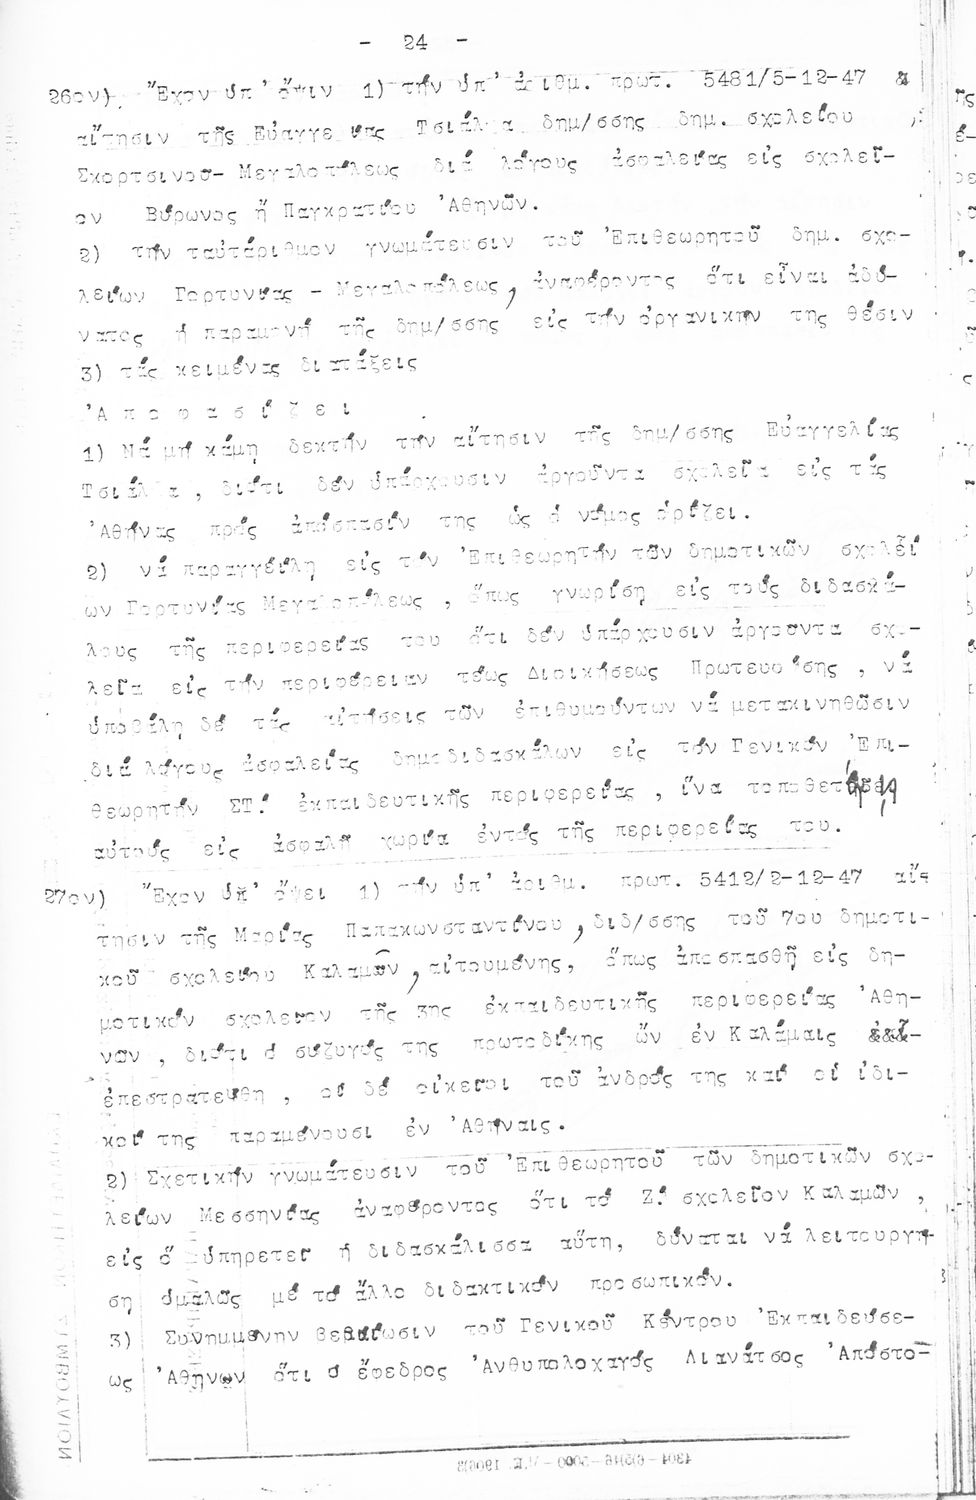 - 24 -
26ον) Ἔχον ὑπ' ὄψιν 1) τήν ὑπ' ἀριθμ. πρωτ. 5481/5-12-47
αἴτησιν τῆς Εὐαγγελίας Τσιάλτα δημ/σσης δημ. σχολείου
Σκορτσινοῦ- Μεγαλοπόλεως διά λόγους ἀσφαλείας εἰς σχολεῖ-
ον Βύρωνος ἤ Παγκρατίου Ἀθηνῶν.
2) τήν ταὐτάριθμον γνωμάτευσιν τοῦ Ἐπιθεωρητοῦ δημ. σχο-
λείων Γορτυνίας - Μεγαλοπόλεως, ἀναφέροντος ὅτι εἶναι ἀδύ-
νατος ἡ παραμονή τῆς δημ/σσης εἰς τήν ὀργανικήν της θέσιν
3) τάς κειμένας διατάξεις
Ἀ π ο φ α σ ί ζ ε ι
1) Νά μή κάμη δεκτήν τήν αἴτησιν τῆς δημ/σσης Εὐαγγελίας
Τσιάλτα, διότι δέν ὑπάρχουσιν ἀργοῦντα σχολεῖα εἰς τάς
Ἀθήνας πρός ἀπόσπασίν της ὡς ὁ νόμος ὁρίζει.
2) νά παραγγείλη εἰς τόν Ἐπιθεωρητήν τῶν δημοτικῶν σχολεί
ων Γορτυνίας Μεγαλοπόλεως, ὅπως γνωρίση εἰς τούς διδασκά-
λους τῆς περιφερείας του ὅτι δέν ὑπάρχουσιν ἀργοῦντα σχο-
λεῖα εἰς τήν περιφέρειαν τέως Διοικήσεως Πρωτευούσης, νά
ὑποβάλη δέ τάς αἰτήσεις τῶν ἐπιθυμούντων νά μετακινηθῶσιν
διά λόγους ἀσφαλείας δημοδιδασκάλων εἰς τόν Γενικόν Ἐπι-
θεωρητήν ΣΤ! ἐκπαιδευτικῆς περιφερείας, ἵνα τοποθετήση
αὐτούς εἰς ἀσφαλῆ χωρία ἐντός τῆς περιφερείας του.
27ον) Ἔχον ὑπ' ὄψει 1) τήν ὑπ' ἀριθμ. πρωτ. 5412/2-12-47 αἴ-
τησιν τῆς Μαρίας Παπακωνσταντίνου, διδ/σσης τοῦ 7ου δημοτι-
κοῦ σχολείου Καλαμῶν, αἰτουμένης, ὅπως ἀποσπασθῆ εἰς δη-
μοτικόν σχολεῖον τῆς 3ης ἐκπαιδευτικῆς περιφερείας Ἀθη-
νῶν, διότι ὁ σύζυγός της πρωτοδίκης ὤν ἐν Καλάμαις
ἐπεστρατεύθη, οἱ δέ οἰκεῖοι τοῦ ἀνδρός της καί οἱ ἰδι-
κοί της παραμένουσι ἐν Ἀθήναις.
2) Σχετικήν γνωμάτευσιν τοῦ Ἐπιθεωρητοῦ τῶν δημοτικῶν σχο-
λείων Μεσσηνίας ἀναφέροντος ὅτι τό Ζ! σχολεῖον Καλαμῶν,
εἰς ὅ ὑπηρετεῖ ἡ διδασκάλισσα αὕτη, δύναται νά λειτουργή-
ση ὁμαλῶς μέ τό ἄλλο διδακτικόν προσωπικόν.
3) Συνημμένην βεβαίωσιν τοῦ Γενικοῦ Κέντρου Ἐκπαιδεύσε-
ως Ἀθηνῶν ὅτι ὁ ἔφεδρος Ἀνθυπολοχαγός Λιανάτσος Ἀπόστο-